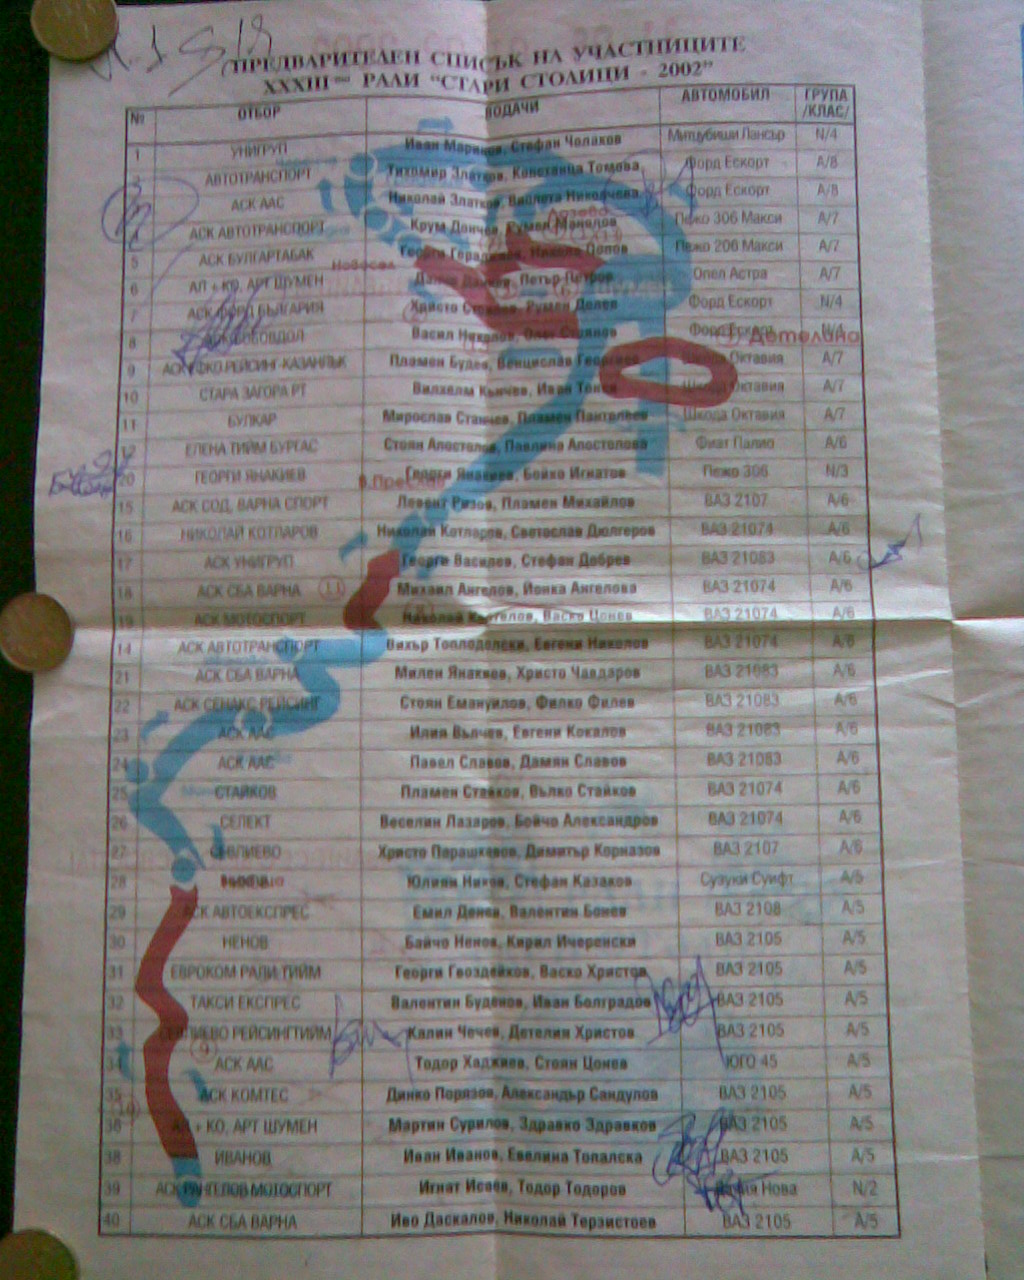 ПРЕДВАРИТЕЛЕН СПИСЪК НА УЧАСТНИЦИТЕ
XXXIII РАЛИ "СТАРИ СТОЛИЦИ - 2002"
№ ОТБОР ВОДАЧИ АВТОМОБИЛ ГРУПА /КЛАС/
1 УНИГРУП Иван Маринов, Стефан Чолаков Митцубиши Лансър N/4
АВТОТРАНСПОРТ Тихомир Златков, Констанца Томова Форд Ескорт А/8
АСК ААС Николай Златков, Виолета Николчева Форд Ескорт А/8
АСК АВТОТРАНСПОРТ Крум Дончев, Румен Манолов Пежо 306 Макси А/7
5 АСК БУЛГАРТАБАК Георги Гераджиев, Никола Попов Пежо 206 Макси А/7
6 АЛ + КО, АРТ ШУМЕН Петър Петров Опел Астра А/7
7 АСК ФОРД БЪЛГАРИЯ Христо Румен Долев Форд Ескорт N/4
8 Васил Николов, Олег Стоянов Форд Ескорт N/4
9 РЕЙСИНГ-КАЗАНЛЪК Пламен Будев, Венцислав Георгиев Шкода Октавия А/7
10 СТАРА ЗАГОРА РТ Вилхелм Кънчев, Иван Тонев Шкода Октавия А/7
11 БУЛКАР Мирослав Станчев, Пламен Пантелеев Шкода Октавия А/7
12 ЕЛЕНА ТИЙМ БУРГАС Стоян Апостолов, Павлина Апостолова Фиат Палио А/6
20 ГЕОРГИ ЯНАКИЕВ Георги Янакиев, Бойко Игнатов Пежо 306 N/3
15 АСК СОД, ВАРНА СПОРТ Левент Ризов, Пламен Михайлов ВАЗ 2107 А/6
16 НИКОЛАЙ КОТЛАРОВ Николай Котларов, Светослав Дюлгеров ВАЗ 21074 А/6
17 АСК УНИГРУП Георги Василев, Стефан Добрев ВАЗ 21083 А/6
18 АСК СБА ВАРНА Михаил Ангелов, Йонка Ангелова ВАЗ 21074 А/6
19 АСК МОТОСПОРТ Николай Васко Цонев ВАЗ 21074 А/6
14 АСК АВТОТРАНСПОРТ Вихър Топлодолски, Евгени Николов ВАЗ 21074 А/6
21 АСК СБА ВАРНА Милен Янакиев, Христо Чавдаров ВАЗ 21083 А/6
22 АСК СЕНАКС РЕЙСИНГ Стоян Емануилов, Филко Филев ВАЗ 21083 А/6
23 АСК ААС Илия Вълчев, Евгени Кокалов ВАЗ 21083 А/6
24 АСК ААС Павел Славов, Дамян Славов ВАЗ 21083 А/6
25 СТАЙКОВ Пламен Стайков, Вълко Стайков ВАЗ 21074 А/6
26 СЕЛЕКТ Веселин Лазаров, Бойчо Александров ВАЗ 21074 А/6
27 СЕВЛИЕВО Христо Парашкевов, Димитър Корназов ВАЗ 2107 А/6
28 Юлиян Нихов, Стефан Казаков Сузуки Суифт А/5
29 АСК АВТОЕКСПРЕС Емил Денев, Валентин Бонев ВАЗ 2108 А/5
30 НЕНОВ Байчо Ненов, Кирил Ичеренски ВАЗ 2105 А/5
31 ЕВРОКОМ РАЛИ ТИЙМ Георги Гвоздейков, Васко Христов ВАЗ 2105 А/5
32 ТАКСИ ЕКСПРЕС Валентин Буденов, Иван Болградов ВАЗ 2105 А/5
33 СЕВЛИЕВО РЕЙСИНГТИЙМ Калин Чечев, Детелин Христов ВАЗ 2105 А/5
34 АСК ААС Тодор Хаджиев, Стоян Цонев ЮГО 45 А/5
35 АСК КОМТЕС Динко Порязов, Александър Сандулов ВАЗ 2105 А/5
36 АЛ + КО, АРТ ШУМЕН Мартин Сурилов, Здравко Здравков ВАЗ 2105 А/5
38 ИВАНОВ Иван Иванов, Евелина Топалска ВАЗ 2105 А/5
39 АСК РАНГЕЛОВ МОТОСПОРТ Игнат Исаев, Тодор Тодоров Нова N/2
40 АСК СБА ВАРНА Иво Даскалов, Николай Терзистоев ВАЗ 2105 А/5